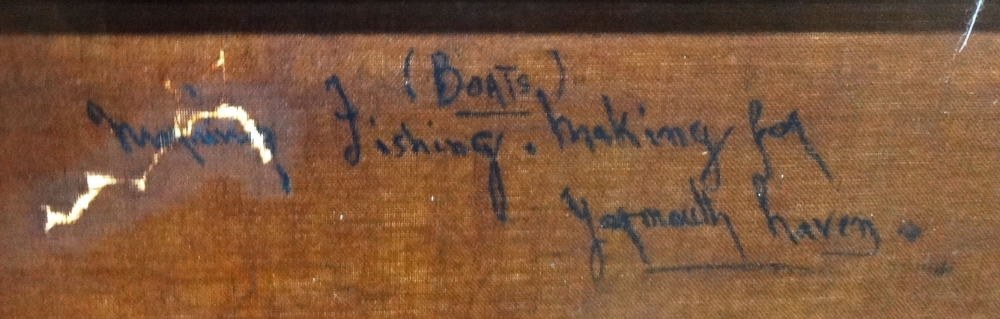 (BOATS)
Morning Fishing. Making for
Yarmouth haven.